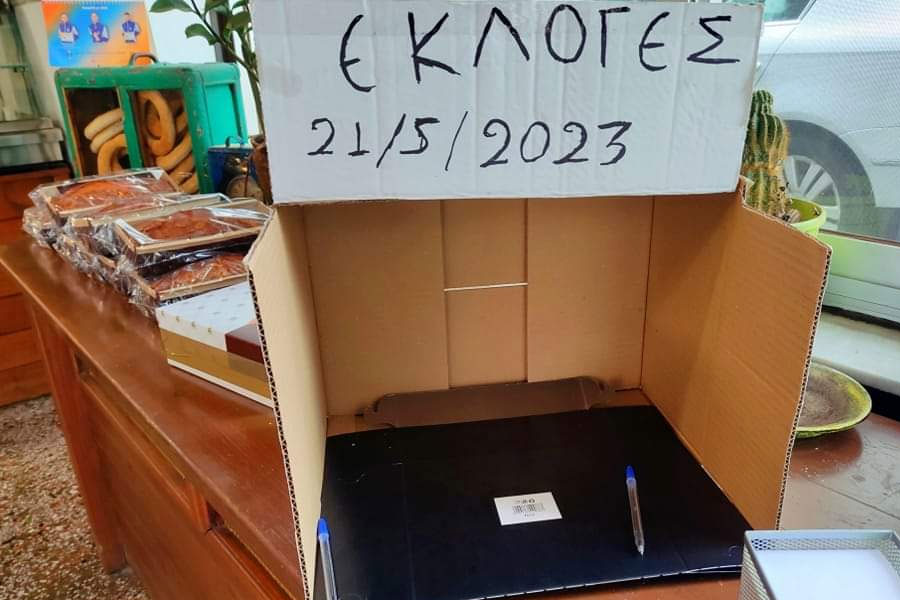 ΕΚΛΟΓΕΣ
21/5/2023